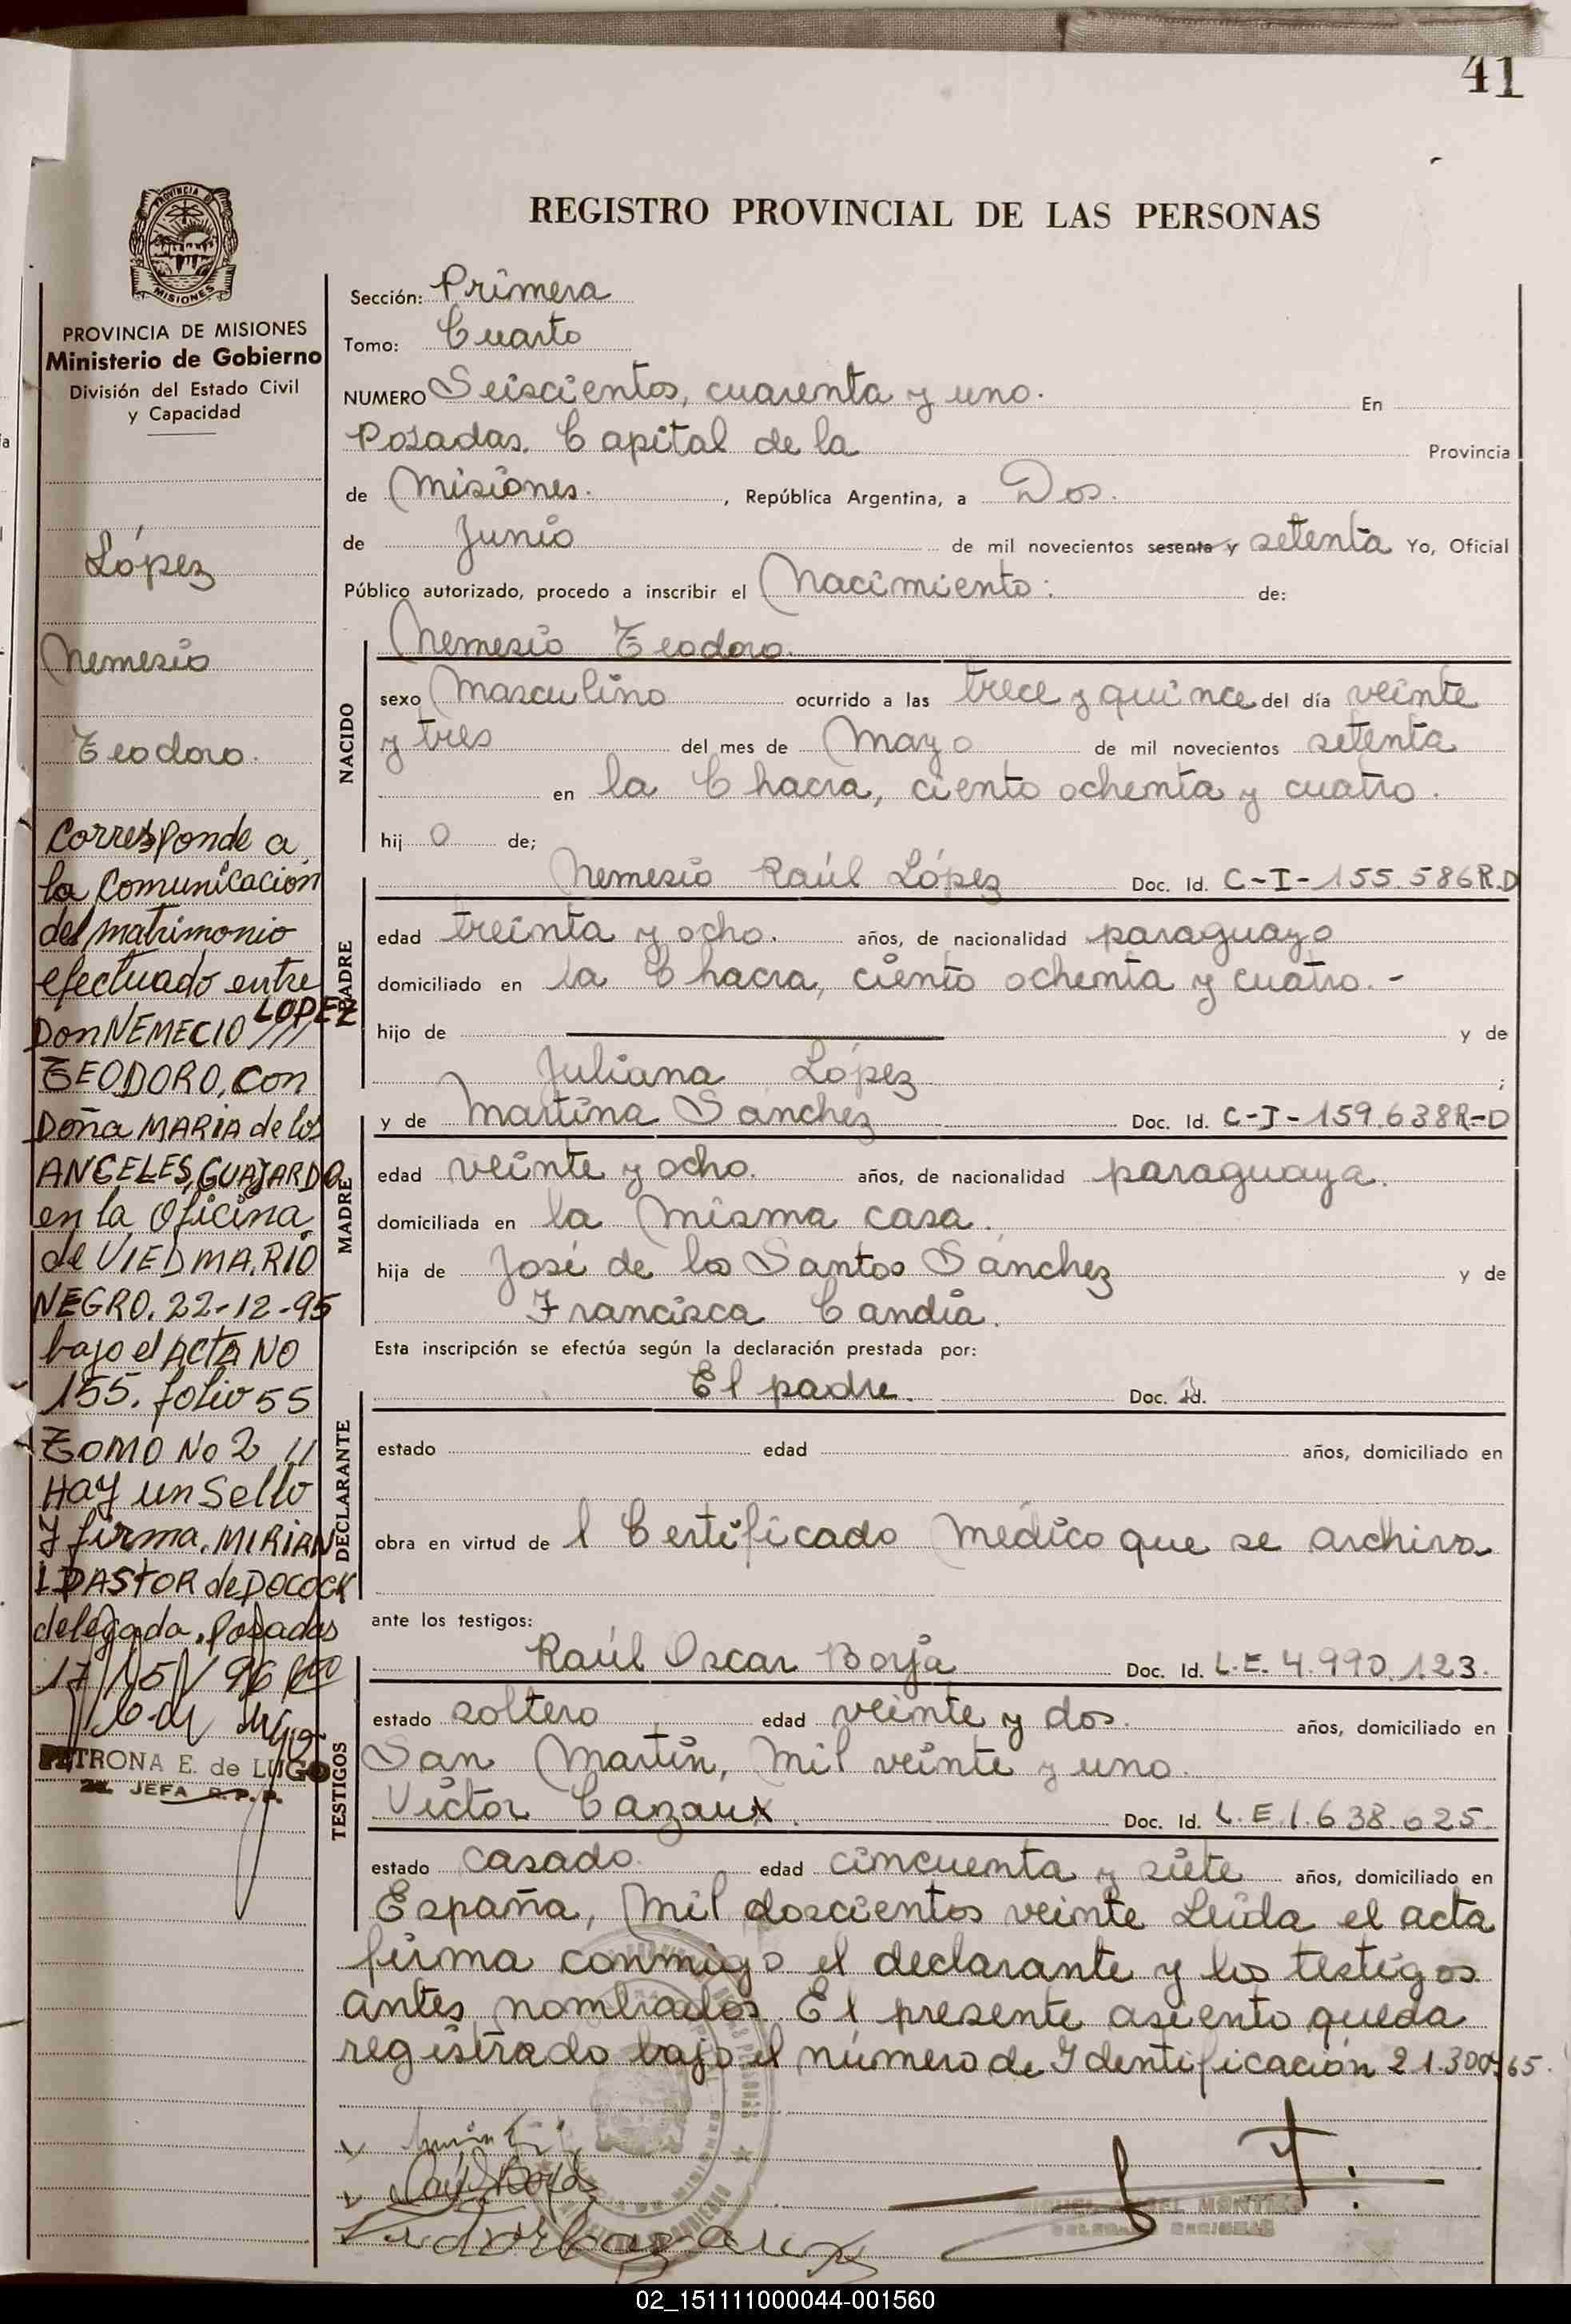 41
REGISTRO PROVINCIAL DE LAS PERSONAS
PROVINCIA
MISIONES
PROVINCIA DE MISIONES
Ministerio de Gobierno
División del Estado Civil
y Capacidad
López
Nemesio
Teodoro.
Corresponde a
la Comunicación
del matrimonio
efectuado entre
Don NEMECIO LOPEZ ///
TEODORO, Con
Doña MARIA de los
ANGELES, GUAJARDO
en la Oficina
de VIEDMA, RIO
NEGRO, 22-12-95
bajo el ACTA NO
155. folio 55
TOMO No 2 //
HAY un Sello
y firma, MIRIAN
PASTOR de POCOCK
delegada. Posadas
17/ 5 / 96
PETRONA E. de LUGO
JEFA R.P.P.
Sección: Primera
Tomo: Cuarto
NUMERO Seiscientos, cuarenta y uno. En
Posadas. Capital de la Provincia
de Misiones. , República Argentina, a Dos.
de Junio de mil novecientos sesenta y setenta Yo, Oficial
Público autorizado, procedo a inscribir el Nacimiento: de:
Nemesio Teodoro.
NACIDO
sexo Masculino ocurrido a las trece y quince del día veinte
y tres del mes de Mayo de mil novecientos setenta
en la Chacra, ciento ochenta y cuatro.
hij o de;
PADRE
Nemesio Raúl López Doc. Id. C-I-155.586R.D
edad treinta y ocho. años, de nacionalidad paraguayo
domiciliado en la Chacra, ciento ochenta y cuatro.-
hijo de y de
Juliana López ;
MADRE
y de Martina Sanchez Doc. Id. C-I-159.638R-D
edad veinte y ocho. años, de nacionalidad paraguaya.
domiciliada en la misma casa.
hija de José de los Santos Sánchez y de
Francisca Candia.
Esta inscripción se efectúa según la declaración prestada por:
DECLARANTE
El padre. Doc. Id.
estado edad años, domiciliado en
obra en virtud de l Certificado Médico que se archiva
ante los testigos:
TESTIGOS
Raúl Oscar Borja Doc. Id. L.E. 4.990.123.
estado soltero edad veinte y dos. años, domiciliado en
San Martín, Mil veinte y uno.
Victor Cazaux. Doc. Id. L.E 1.638.625.
estado casado. edad cincuenta y siete años, domiciliado en
España, Mil doscientos veinte Leída el acta
firma conmigo el declarante y los testigos
antes nombrados. El presente asiento queda
registrado bajo el número de Identificación 21.300.765.
Raúl Borja
Victor Cazaux
MIGUEL ANGEL MONTIEL
02_151111000044-001560